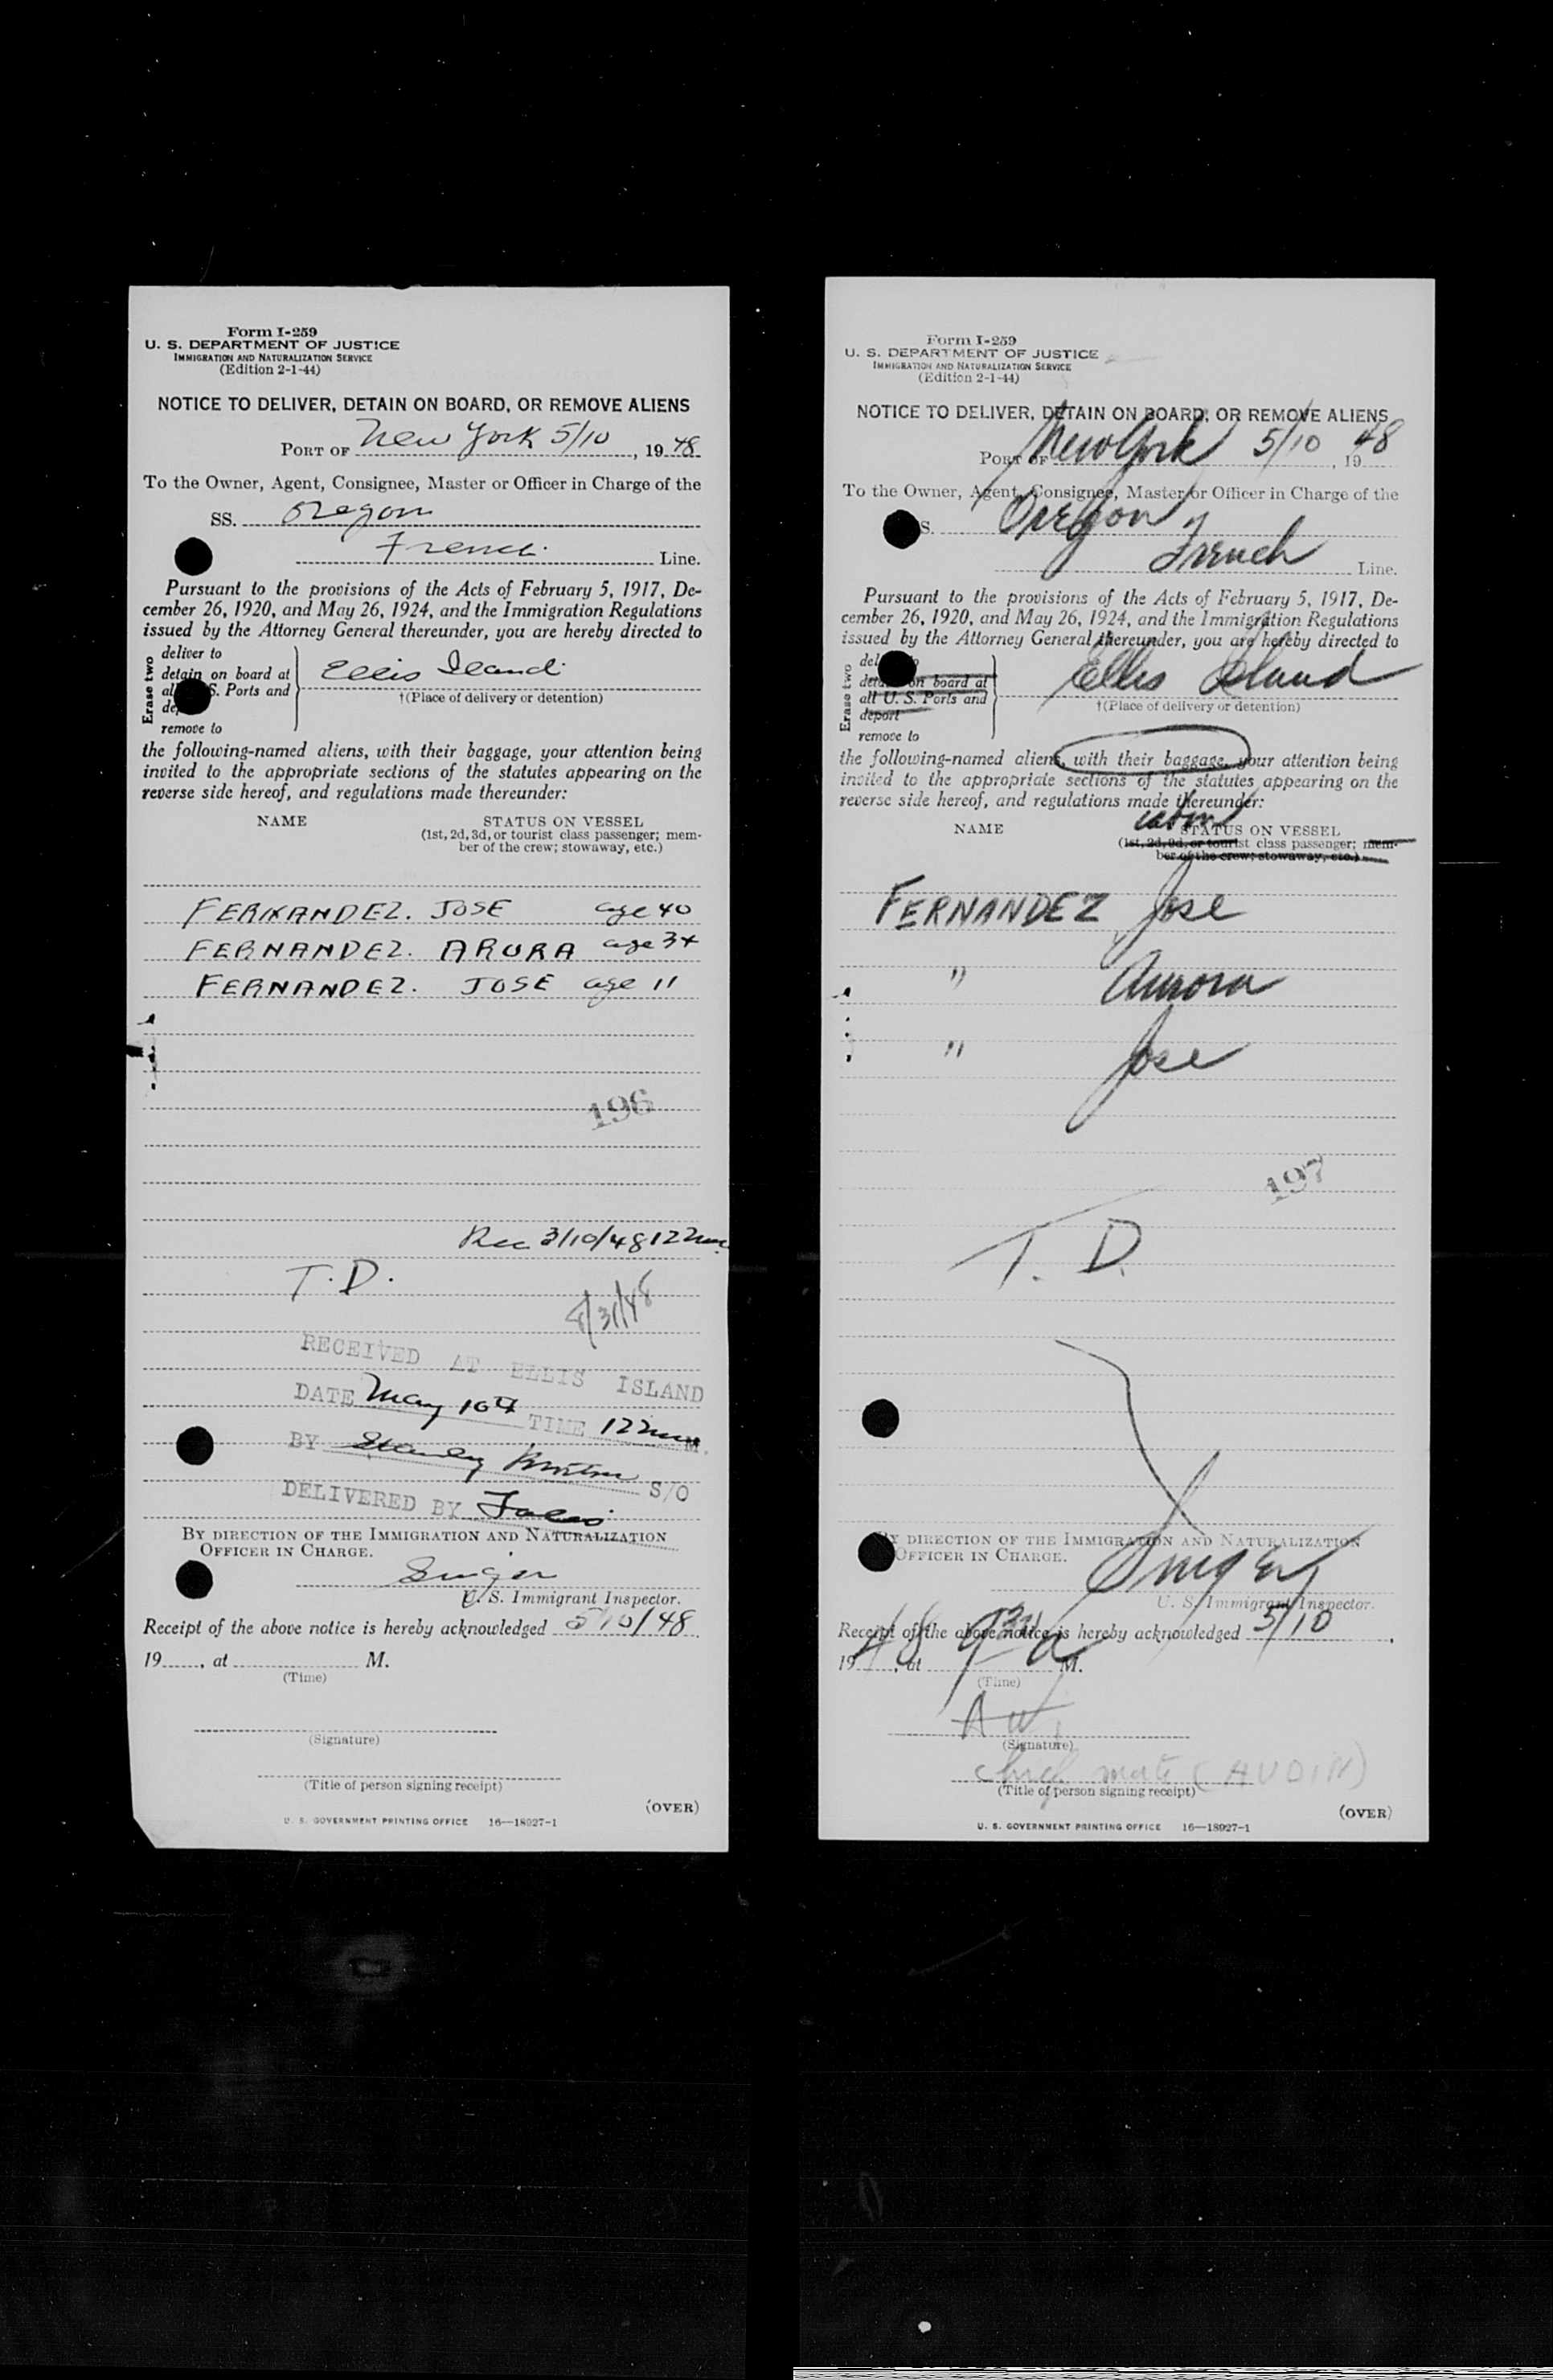 Form I-259
U. S. DEPARTMENT OF JUSTICE
IMMIGRATION AND NATURALIZATION SERVICE
(Edition 2-1-44)
NOTICE TO DELIVER, DETAIN ON BOARD, OR REMOVE ALIENS
PORT OF New York 5/10, 1948
To the Owner, Agent, Consignee, Master or Officer in Charge of the
SS. Oregon
French Line.
Pursuant to the provisions of the Acts of February 5, 1917, De-
cember 26, 1920, and May 26, 1924, and the Immigration Regulations
issued by the Attorney General thereunder, you are hereby directed to
Erase two
deliver to
detain on board at
all S. Ports and
de
remove to
Ellis Iland
†(Place of delivery or detention)
the following-named aliens, with their baggage, your attention being
invited to the appropriate sections of the statutes appearing on the
reverse side hereof, and regulations made thereunder:
NAME STATUS ON VESSEL
(1st, 2d, 3d, or tourist class passenger; mem-
ber of the crew; stowaway, etc.)
FERNANDEZ. JOSE age 40
FERNANDEZ. ARURA age 34
FERNANDEZ. JOSE age 11
196
Rec 3/10/48 12
T.D.
/31/48
RECEIVED AT ELLIS ISLAND
DATE May 10th TIME 12 M.
BY Stanley S/O
DELIVERED BY
BY DIRECTION OF THE IMMIGRATION AND NATURALIZATION
OFFICER IN CHARGE.
Singer
U. S. Immigrant Inspector.
Receipt of the above notice is hereby acknowledged 5/10/48,
19, at M.
(Time)
(Signature)
(Title of person signing receipt)
(OVER)
U. S. GOVERNMENT PRINTING OFFICE 16—18027-1
Form I-259
U. S. DEPARTMENT OF JUSTICE
IMMIGRATION AND NATURALIZATION SERVICE
(Edition 2-1-44)
NOTICE TO DELIVER, DETAIN ON BOARD, OR REMOVE ALIENS
PORT OF New York 5/10, 1948
To the Owner, Agent, Consignee, Master or Officer in Charge of the
S. Oregon
French Line.
Pursuant to the provisions of the Acts of February 5, 1917, De-
cember 26, 1920, and May 26, 1924, and the Immigration Regulations
issued by the Attorney General thereunder, you are hereby directed to
Erase two
del
deta on board at
all U. S. Ports and
deport
remove to
Ellis Island
†(Place of delivery or detention)
the following-named aliens, with their baggage, your attention being
invited to the appropriate sections of the statutes appearing on the
reverse side hereof, and regulations made thereunder:
cabin
NAME STATUS ON VESSEL
(1st, 2d, 3d, or tourist class passenger; mem-
ber of the crew; stowaway, etc.)
FERNANDEZ Jose
" Aurora
" Jose
197
T. D.
BY DIRECTION OF THE IMMIGRATION AND NATURALIZATION
OFFICER IN CHARGE.
Singer
U. S. Immigrant Inspector.
Receipt of the above notice is hereby acknowledged 5/10,
1948, at 9 30 a M.
(Time)
(Signature)
Chief mate (AUDIN)
(Title of person signing receipt)
(OVER)
U. S. GOVERNMENT PRINTING OFFICE 16—18027-1